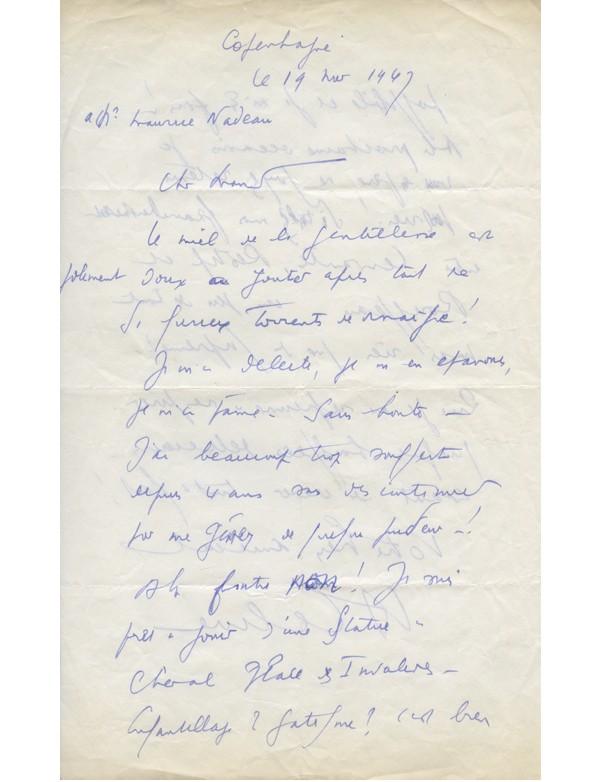 Copenhague
Le 19 1947
à Mr Maurice Nadeau
Cher
Le miel de la gentillesse est
joliment doux au gouter après tant de
si furieux torrents de
Je m'en délecte, je m'en
je m'en Sans honte —
J'ai beaucoup trop souffert
depuis 4 ans sous des
pour me gêner de quelque pudeur — !
Ah foutre NON ! Je suis
près à jouir d'une statue à
cheval Place des Invalides —
Enfantillage ? Gâtisme ? C'est bien